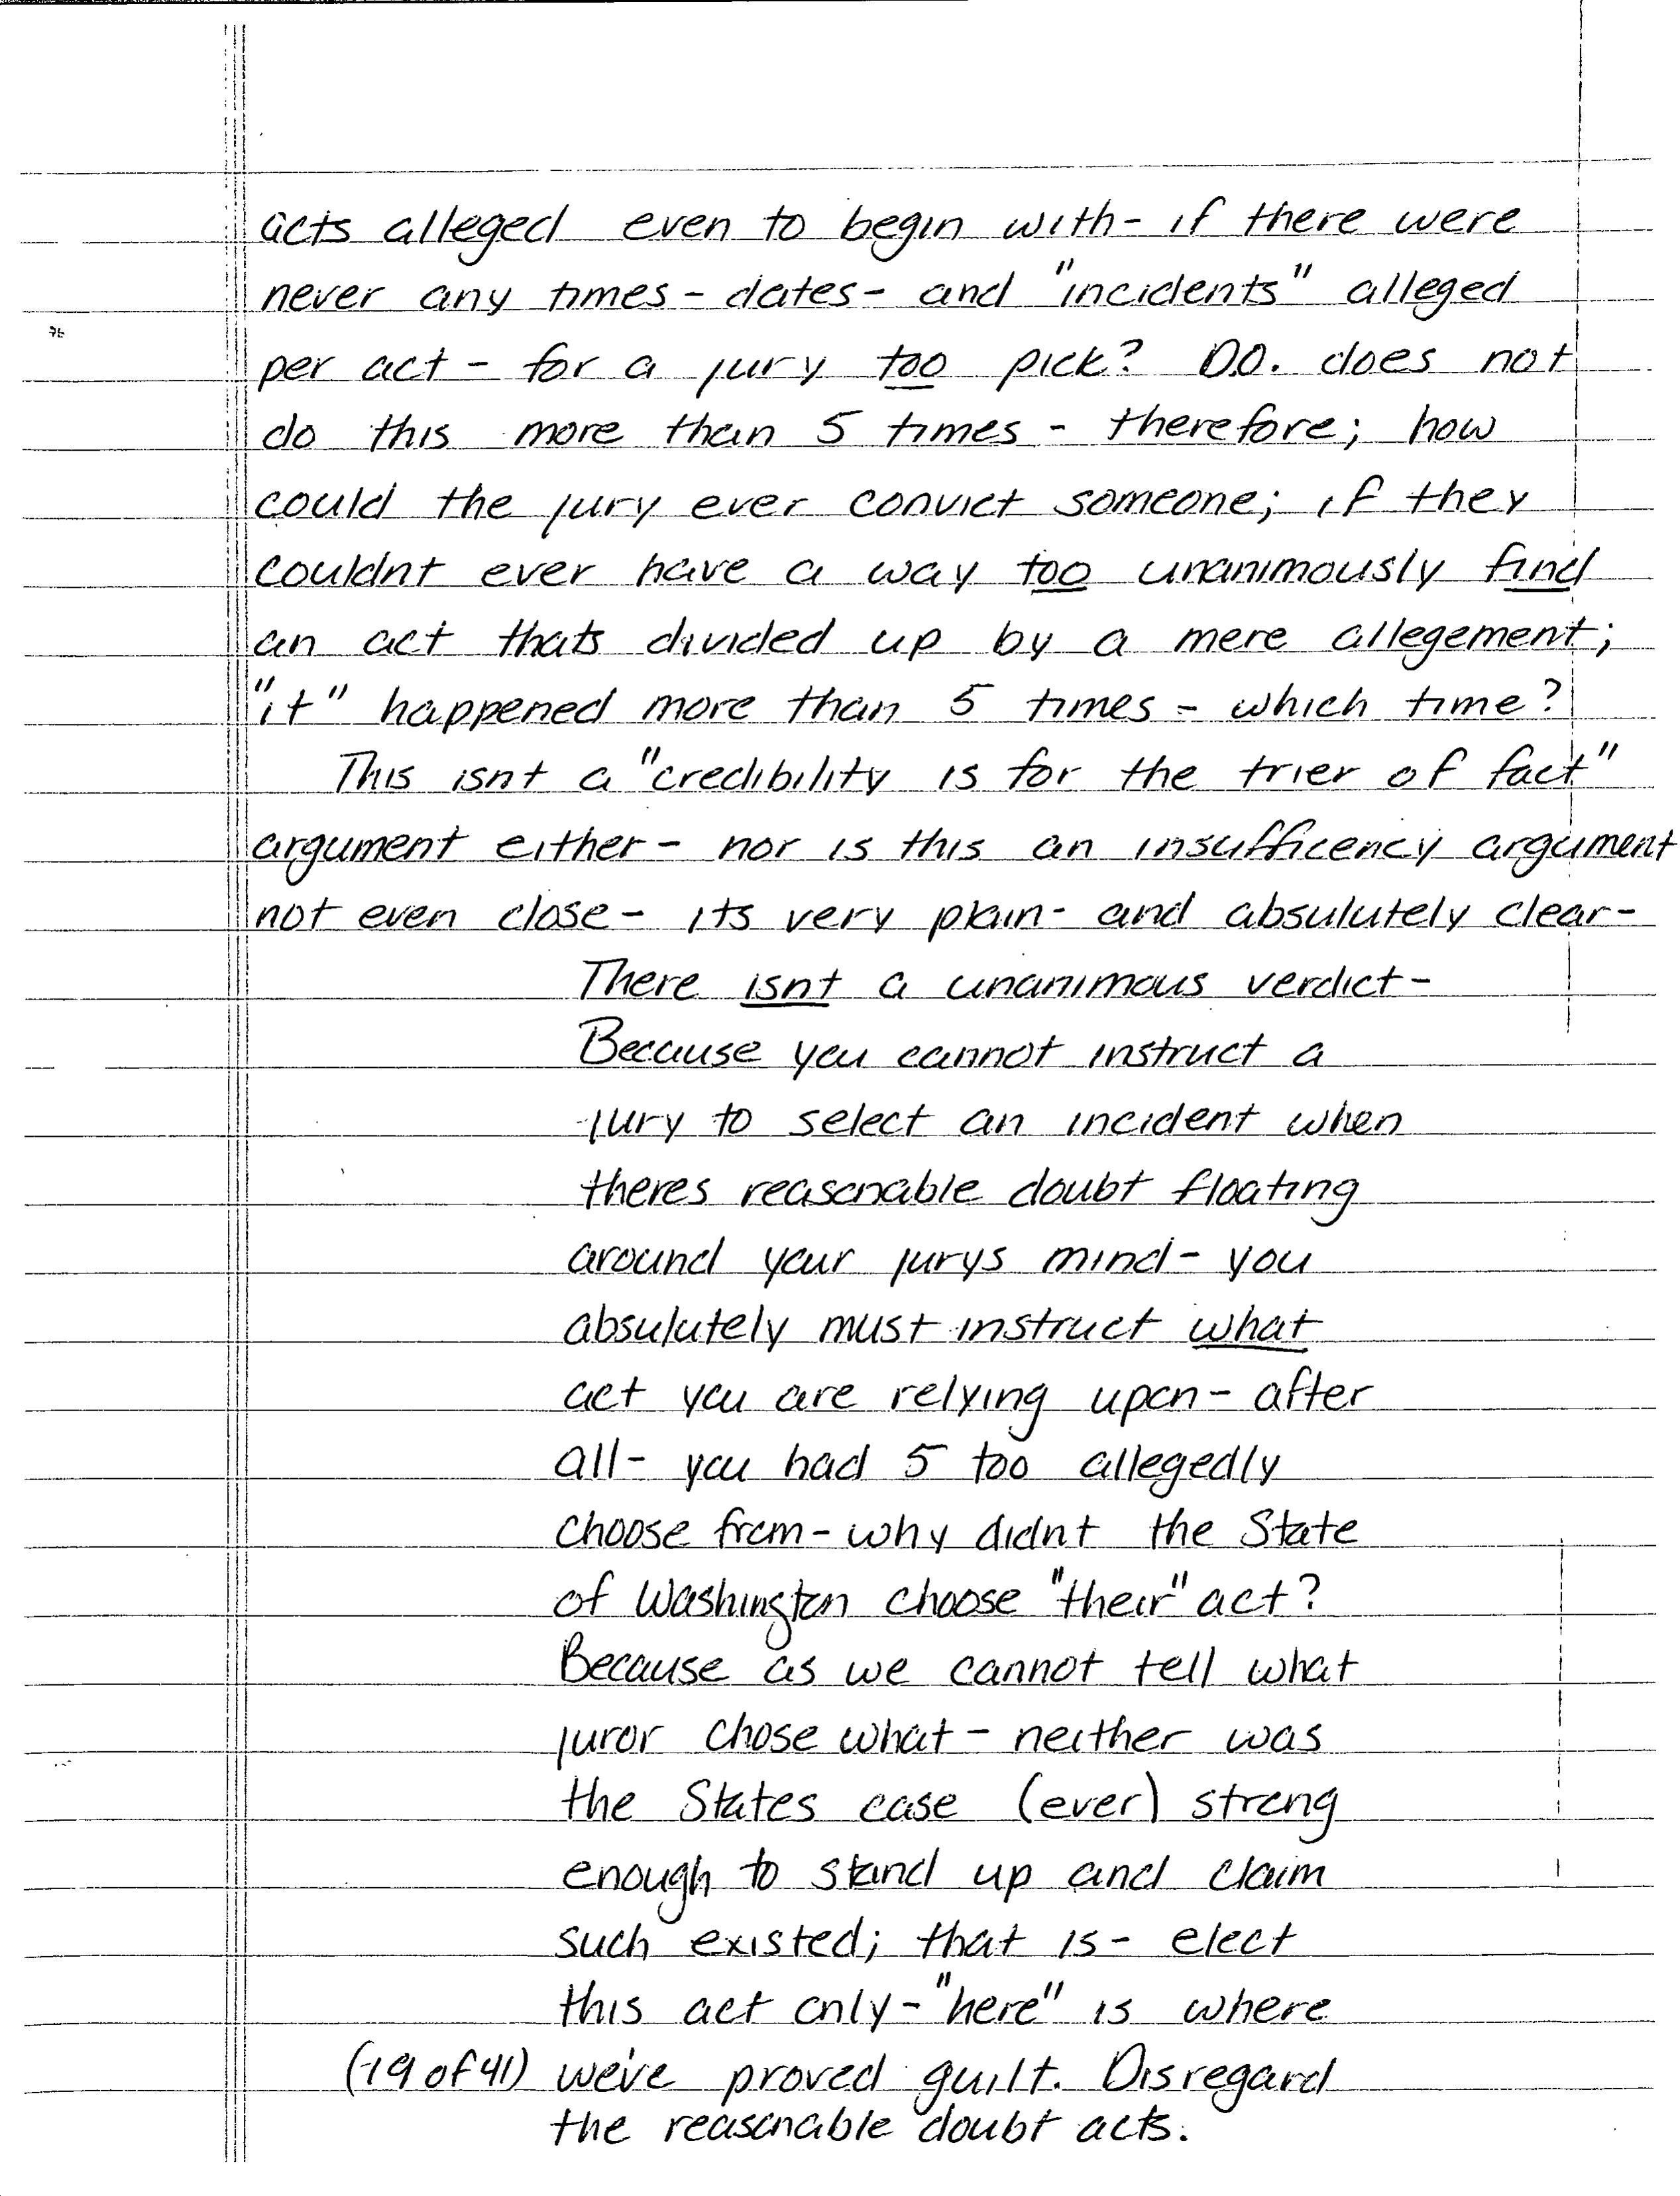 acts alleged even to begin with- if there were
never any times- dates- and "incidents" alleged
per act - for a jury too pick? D.O. does not
do this more than 5 times - therefore; how
could the jury ever convict someone; if they
couldnt ever have a way too unanimously find
an act thats divided up by a mere allegement;
"it" happened more than 5 times - which time?
This isnt a "credibility is for the trier of fact"
argument either- nor is this an insufficency argument
not even close- its very plain- and absulutely clear-
There isnt a unanimous verdict-
Because you cannot instruct a
jury to select an incident when
theres reasonable doubt floating
around your jurys mind- you
absulutely must instruct what
act you are relying upon- after
all- you had 5 too allegedly
choose from- why didnt the State
of Washington choose "their" act?
Because as we cannot tell what
juror chose what- neither was
the States case (ever) strong
enough to stand up and claim
such existed; that is- elect
this act only- "here" is where
(19 of 41) we've proved guilt. Disregard
the reasonable doubt acts.